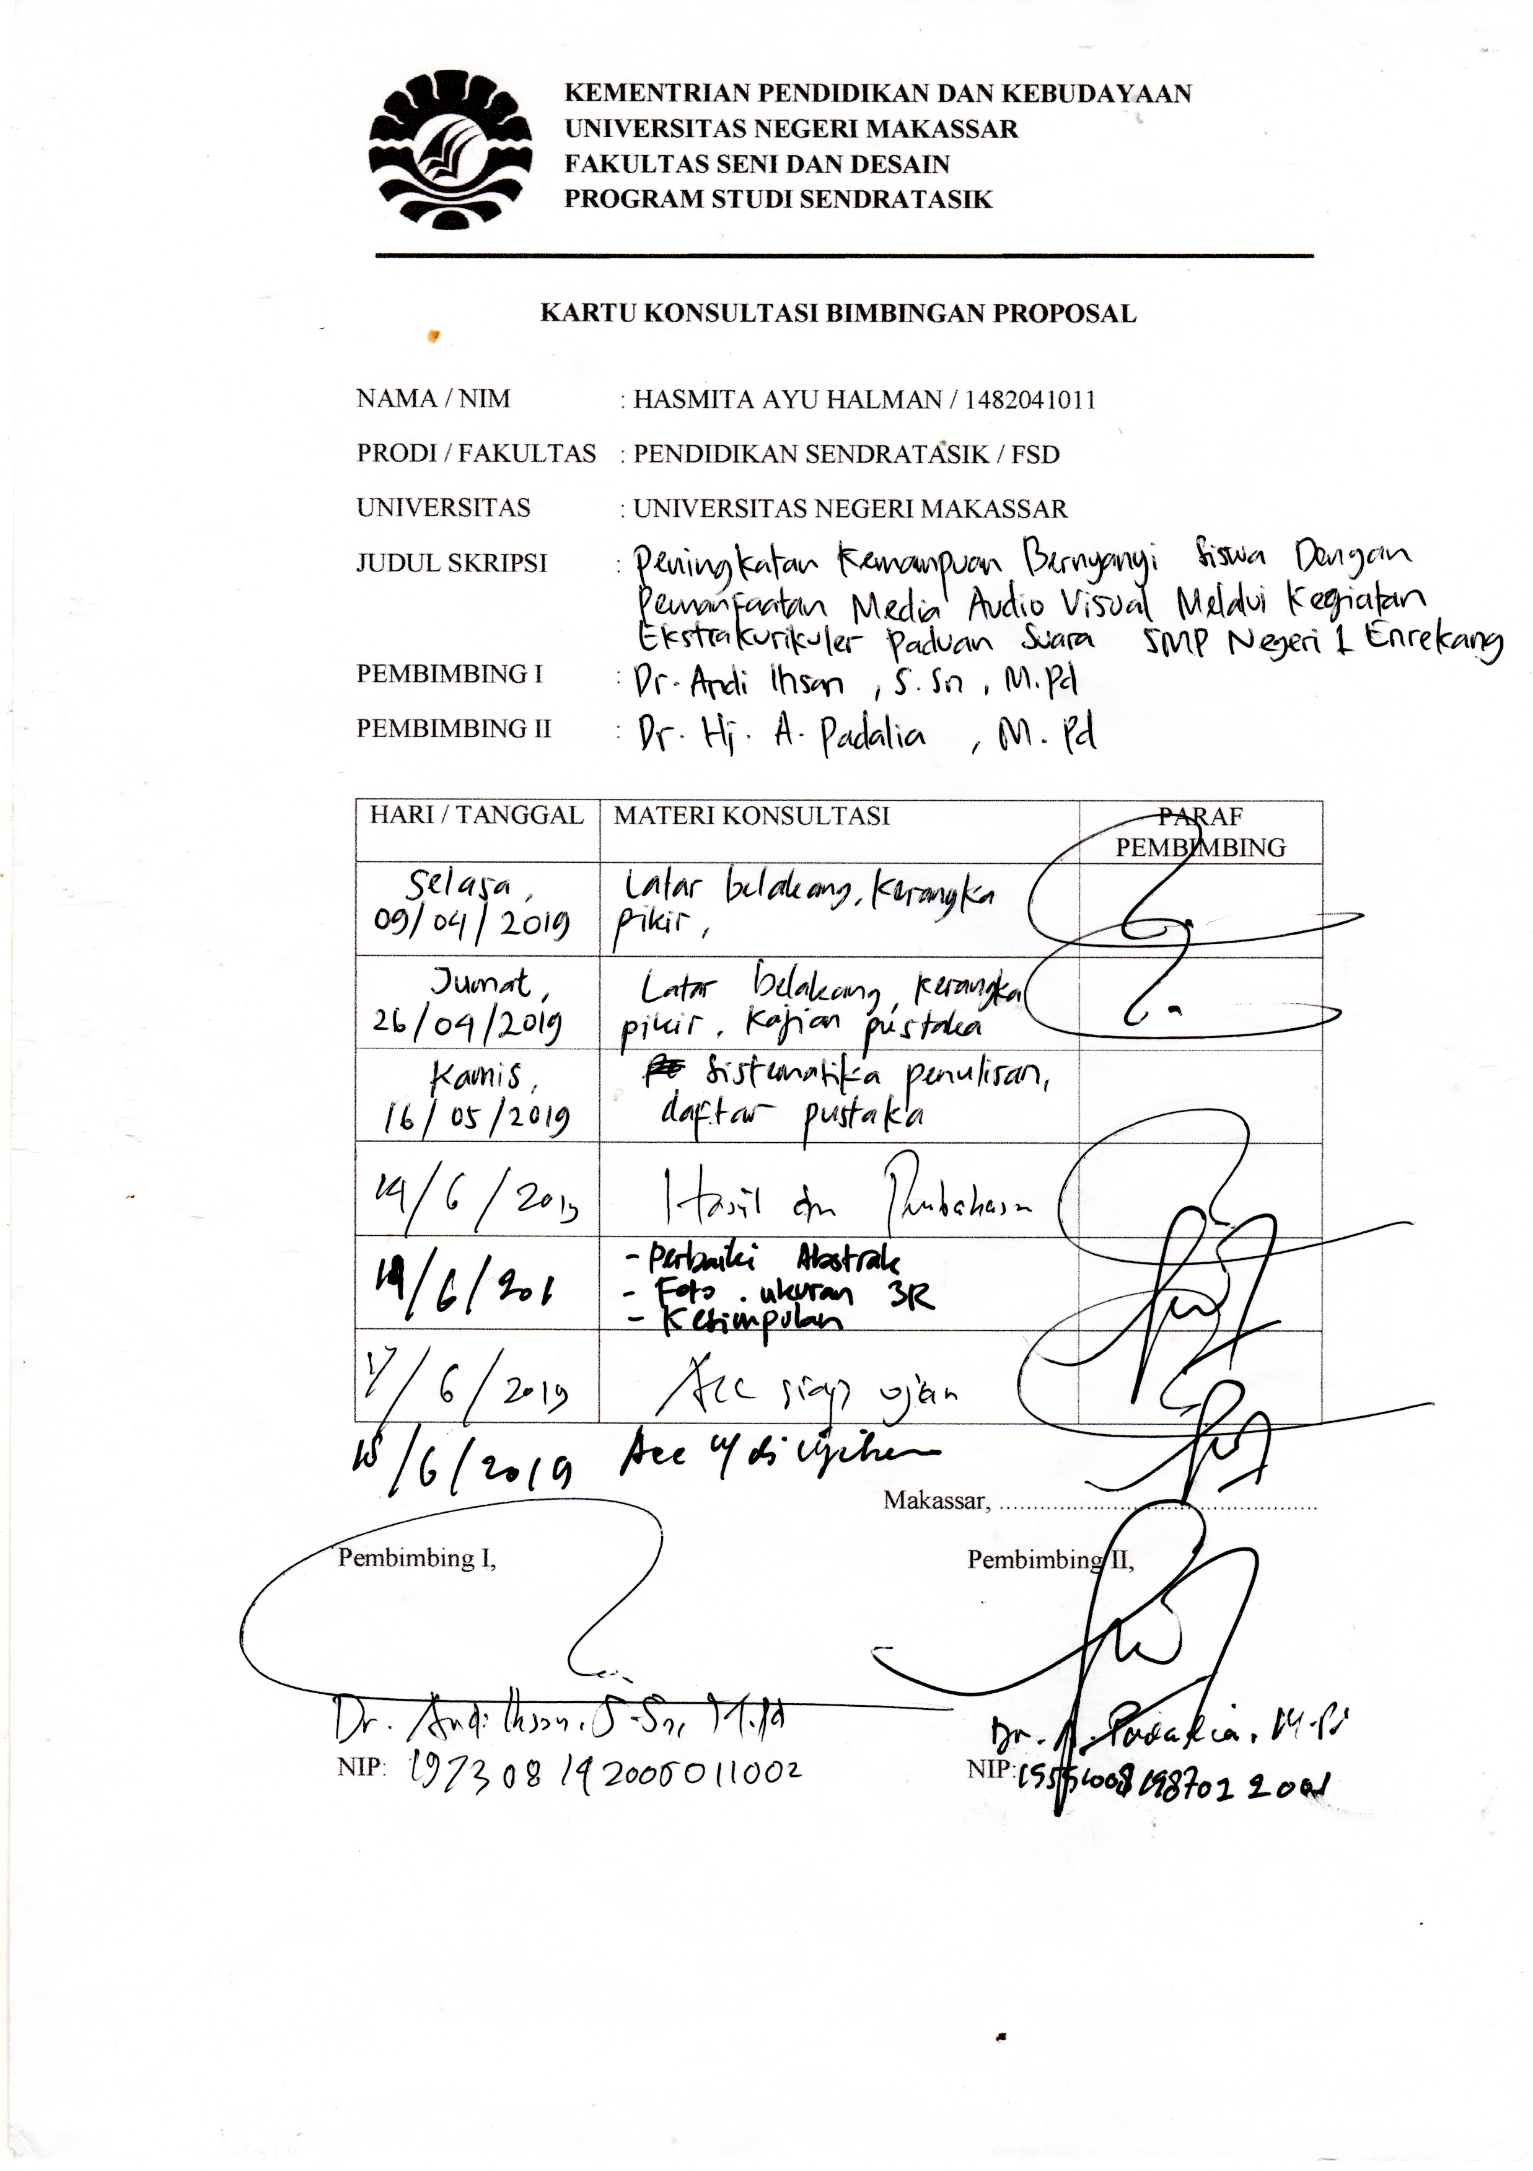 KEMENTRIAN PENDIDIKAN DAN KEBUDAYAAN
UNIVERSITAS NEGERI MAKASSAR
FAKULTAS SENI DAN DESAIN
PROGRAM STUDI SENDRATASIK
KARTU KONSULTASI BIMBINGAN PROPOSAL
NAMA / NIM : HASMITA AYU HALMAN / 1482041011
PRODI / FAKULTAS : PENDIDIKAN SENDRATASIK / FSD
UNIVERSITAS : UNIVERSITAS NEGERI MAKASSAR
JUDUL SKRIPSI : Peningkatan Kemampuan Bernyanyi Siswa Dengan
Pemanfaatan Media Audio Visual Melalui Kegiatan
Ekstrakurikuler Paduan Suara SMP Negeri 1 Enrekang
PEMBIMBING I : Dr. Andi Ihsan, S.Sn, M.Pd
PEMBIMBING II : Dr. Hj. A. Padalia, M.Pd
HARI / TANGGAL MATERI KONSULTASI PARAF
PEMBIMBING
Selasa, Latar belakang, Kerangka
09/04/2019 pikir,
Jumat, Latar belakang, kerangka
26/04/2019 pikir, Kajian pustaka
Kamis, Sistematika penulisan,
16/05/2019 daftar pustaka
14/6/2019 Hasil dan Pembahasan
- Perbaiki Abstrak
/6/201 - Foto . ukuran 3R
- Kesimpulan
17/6/2019 Acc siap ujian
/6/2019 Acc u/ di ujikan
Makassar, ..................................................
Pembimbing I, Pembimbing II,
Dr. Andi Ihsan, S.Sn, M.Pd Dr. A. Padalia, M.Pd
NIP: NIP: